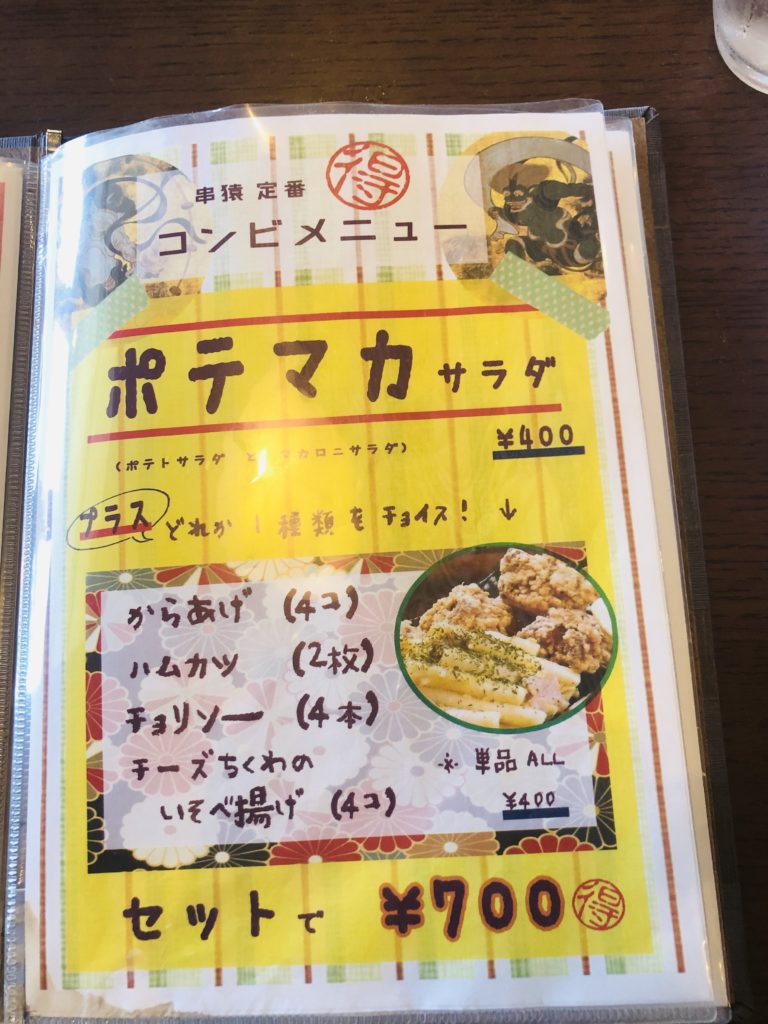 得
串猿 定番
コンビメニュー
ポテマカ サラダ
¥400
(ポテトサラダ と マカロニサラダ)
プラス どれか 1 種類 を チョイス! ↓
からあげ (4コ)
ハムカツ (2枚)
チョリソー (4本)
チーズちくわの
いそべ揚げ (4コ)
※ 単品 ALL
¥400
セットで ¥700 得